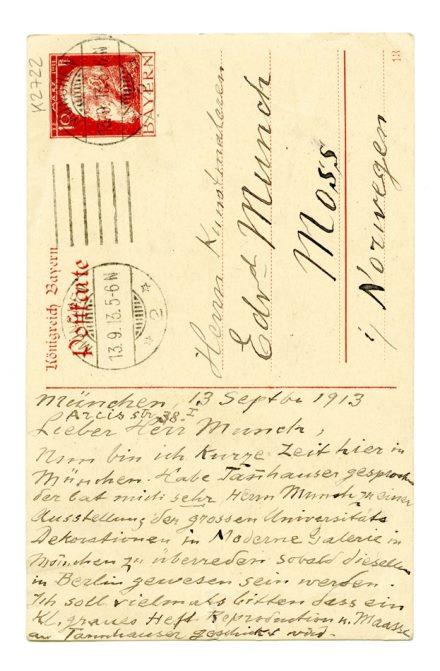 K2722
10
BAYERN
13
Königreich Bayern
Postkarte
13.9.13.5-6 N
2
Herrn Kunstmaleren
Edvd Munch
Moss
i, Norwegen
München, 13 Septbr 1913
Arcisstr. 38. I
Lieber Herr Munch,
Nun bin ich kurze Zeit hier in
München. Habe Tannhauser gesprochen
der bat mich sehr Herrn Munch zu einer
Ausstellung der grossen Universitäts
Dekorationen in Moderne Galerie in
München zu überreden sobald dieselben
in Berlin gewesen sein werden.
Ich soll vielmals bitten dass ein
kl. graues Heft Reproduction u. Maasse
an Tannhauser geschickt wird.